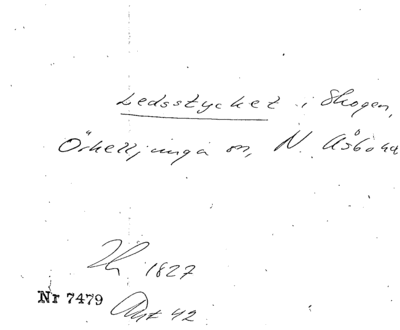 Ledsstycket i Skogen,
Örkelljunga sn, N. Åsbo hd
1827
Nr 7479 Akt 42